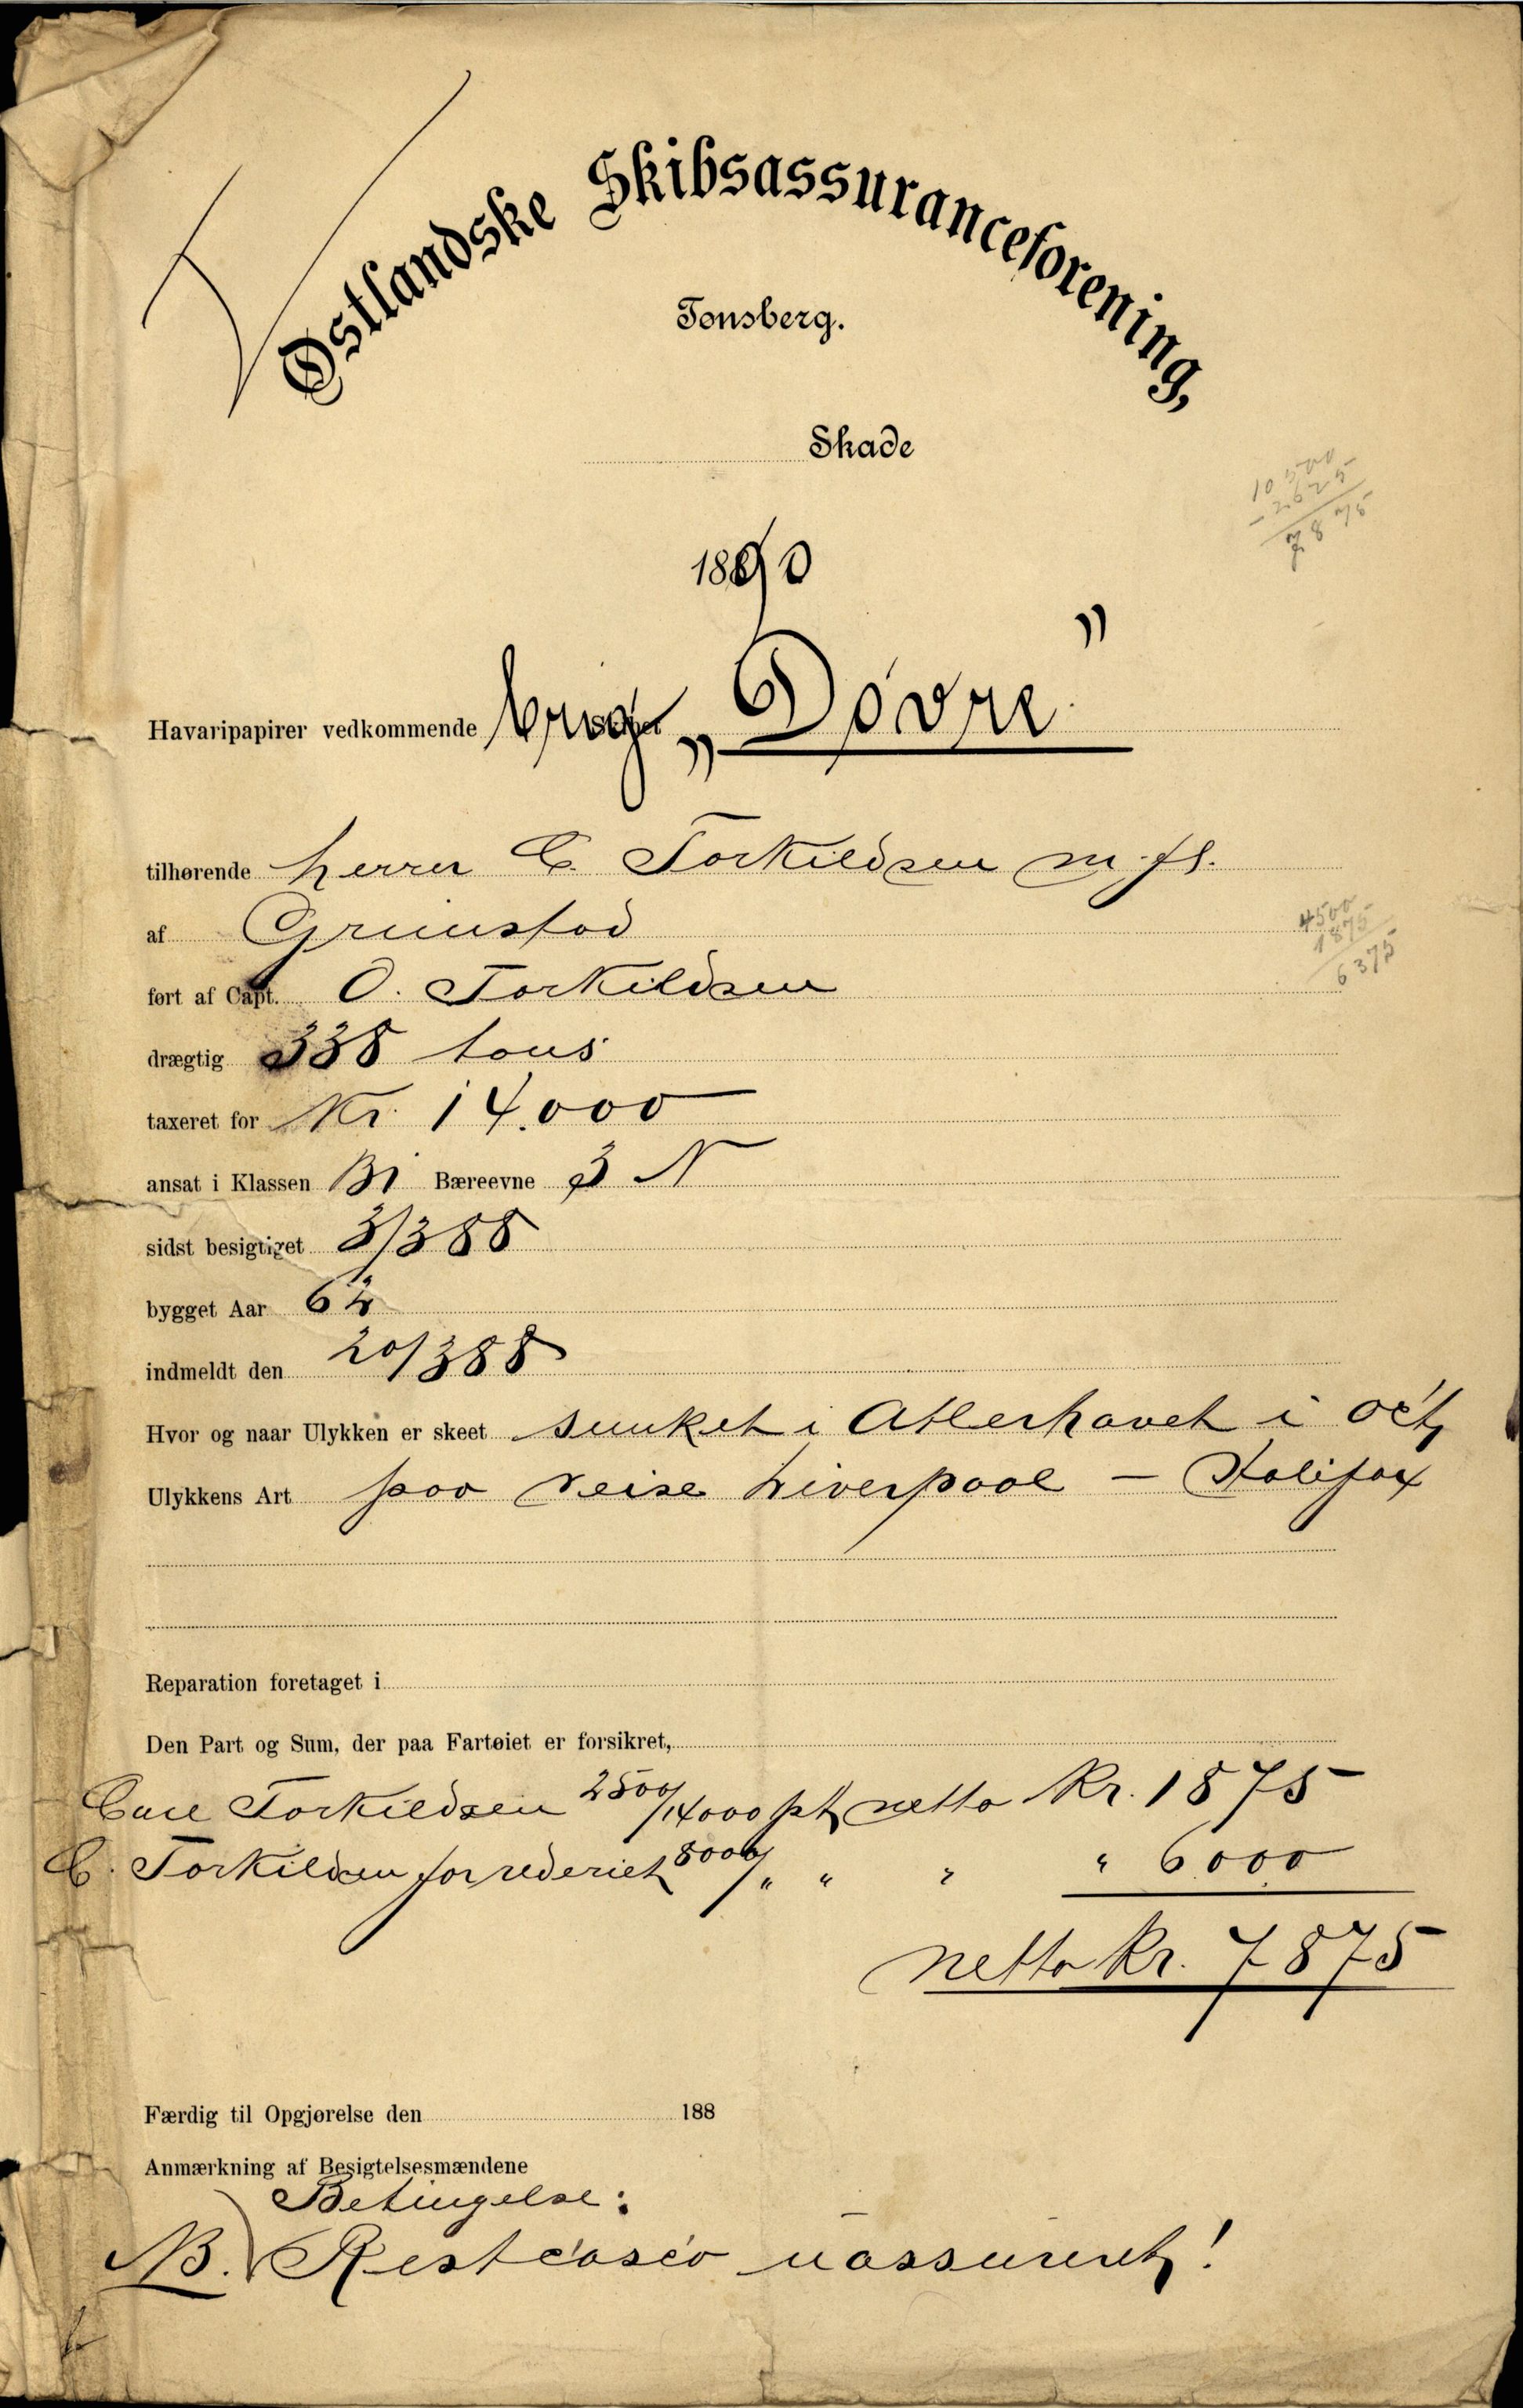 Østlandske Skibsassuranceforening,
Tønsberg.
Skade
10500
- 2625
7875
1890
Havaripapirer vedkommende brig „Dovre"
tilhørende herrer C. Torkildsen m. fl.
af Grimstad
4500
1875
6375
ført af Capt. O. Torkildsen
drægtig 338 tons
taxeret for Kr. 14.000
ansat i Klassen B1 Bæreevne 3 N
sidst besigtiget 3/3 88
bygget Aar
indmeldt den 20/3 88
Hvor og naar Ulykken er skeet sunket i Atlerhavet i Oct,
Ulykkens Art paa reise Liverpool – Halifax
Reparation foretaget i
Den Part og Sum, der paa Fartøiet er forsikret,
Carl Torkildsen 2500/14000 pt netto Kr. 1875
C. Torkildsen for rederiet 8000/„ „ „ „ 6000
netto Kr. 7875
Færdig til Opgjørelse den 188
Anmærkning af Besigtelsesmændene
Betingelse:
NB. Restcasco uassureret!